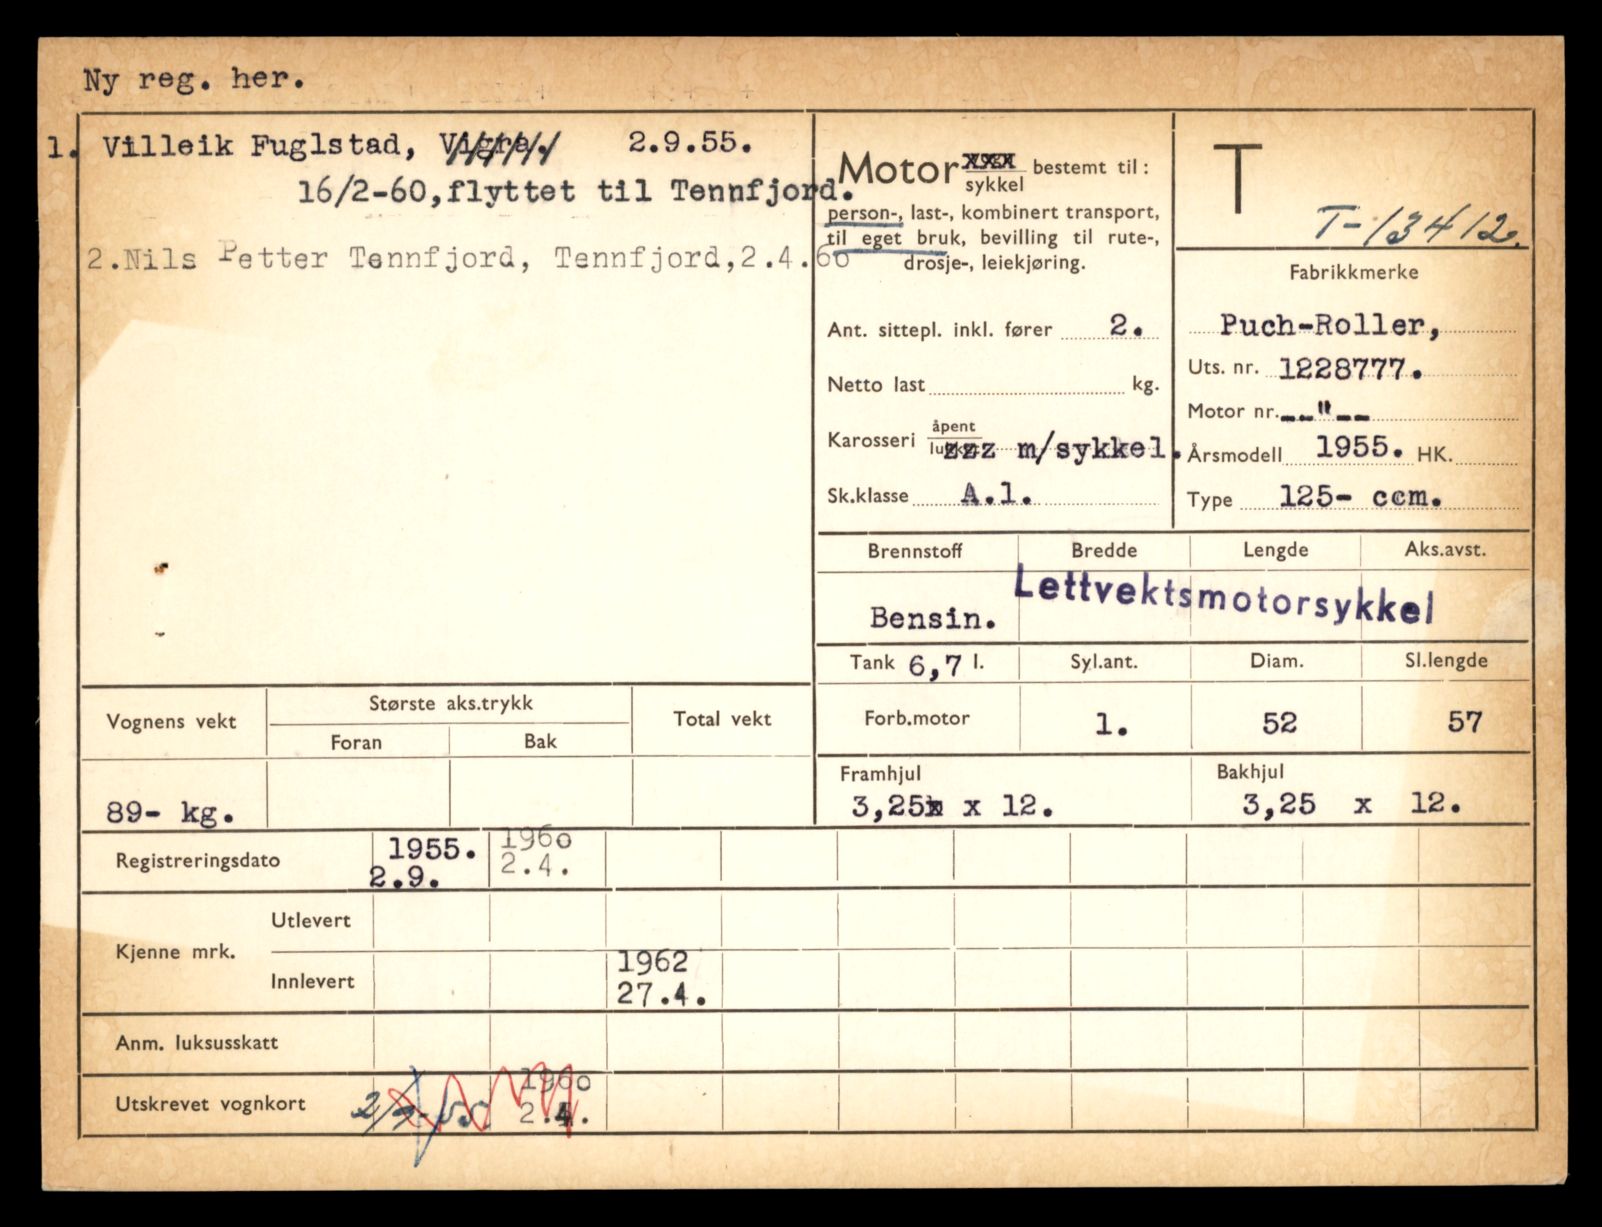 Ny reg. her.
1. Villeik Fuglstad, Vigra. 2.9.55.
16/2-60, flyttet til Tennfjord.
2. Nils Petter Tennfjord, Tennfjord, 2.4.60
Motor xxx sykkel bestemt til:
person-, last-, kombinert transport,
til eget bruk, bevilling til rute-,
drosje-, leiekjøring.
Ant. sittepl. inkl. fører 2.
Netto last kg.
Karosseri åpent zzz m/sykkel.
Sk.klasse A.1.
T
T-13412.
Fabrikkmerke
Puch-Roller,
Uts. nr. 1228777.
Motor nr. --"--
Årsmodell 1955. HK.
Type 125- ccm.
Brennstoff Bredde Lengde Aks.avst.
Bensin. Lettvektsmotorsykkel
Tank 6,7 l. Syl.ant. Diam. Sl.lengde
Forb.motor 1. 52 57
Framhjul Bakhjul
3,25 x 12. 3,25 x 12.
Vognens vekt Største aks.trykk Total vekt
Foran Bak
89- kg.
Registreringsdato 1955. 1960
2.9. 2.4.
Kjenne mrk. Utlevert
Innlevert 1962
27.4.
Anm. luksusskatt
Utskrevet vognkort 2/9-55 1960
2.4.